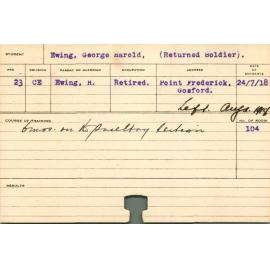 STUDENT Ewing, George Harold, (Returned Soldier).
AGE RELIGION PARENT OR GUARDIAN OCCUPATION ADDRESS DATE OF ENTRANCE
23 CE Ewing, H. Retired. Point Frederick, 24/7/18
Gosford.
Left.
COURSE OF TRAINING NO. OF ROOM
6 mos. on the Poultry Section 104
RESULTS